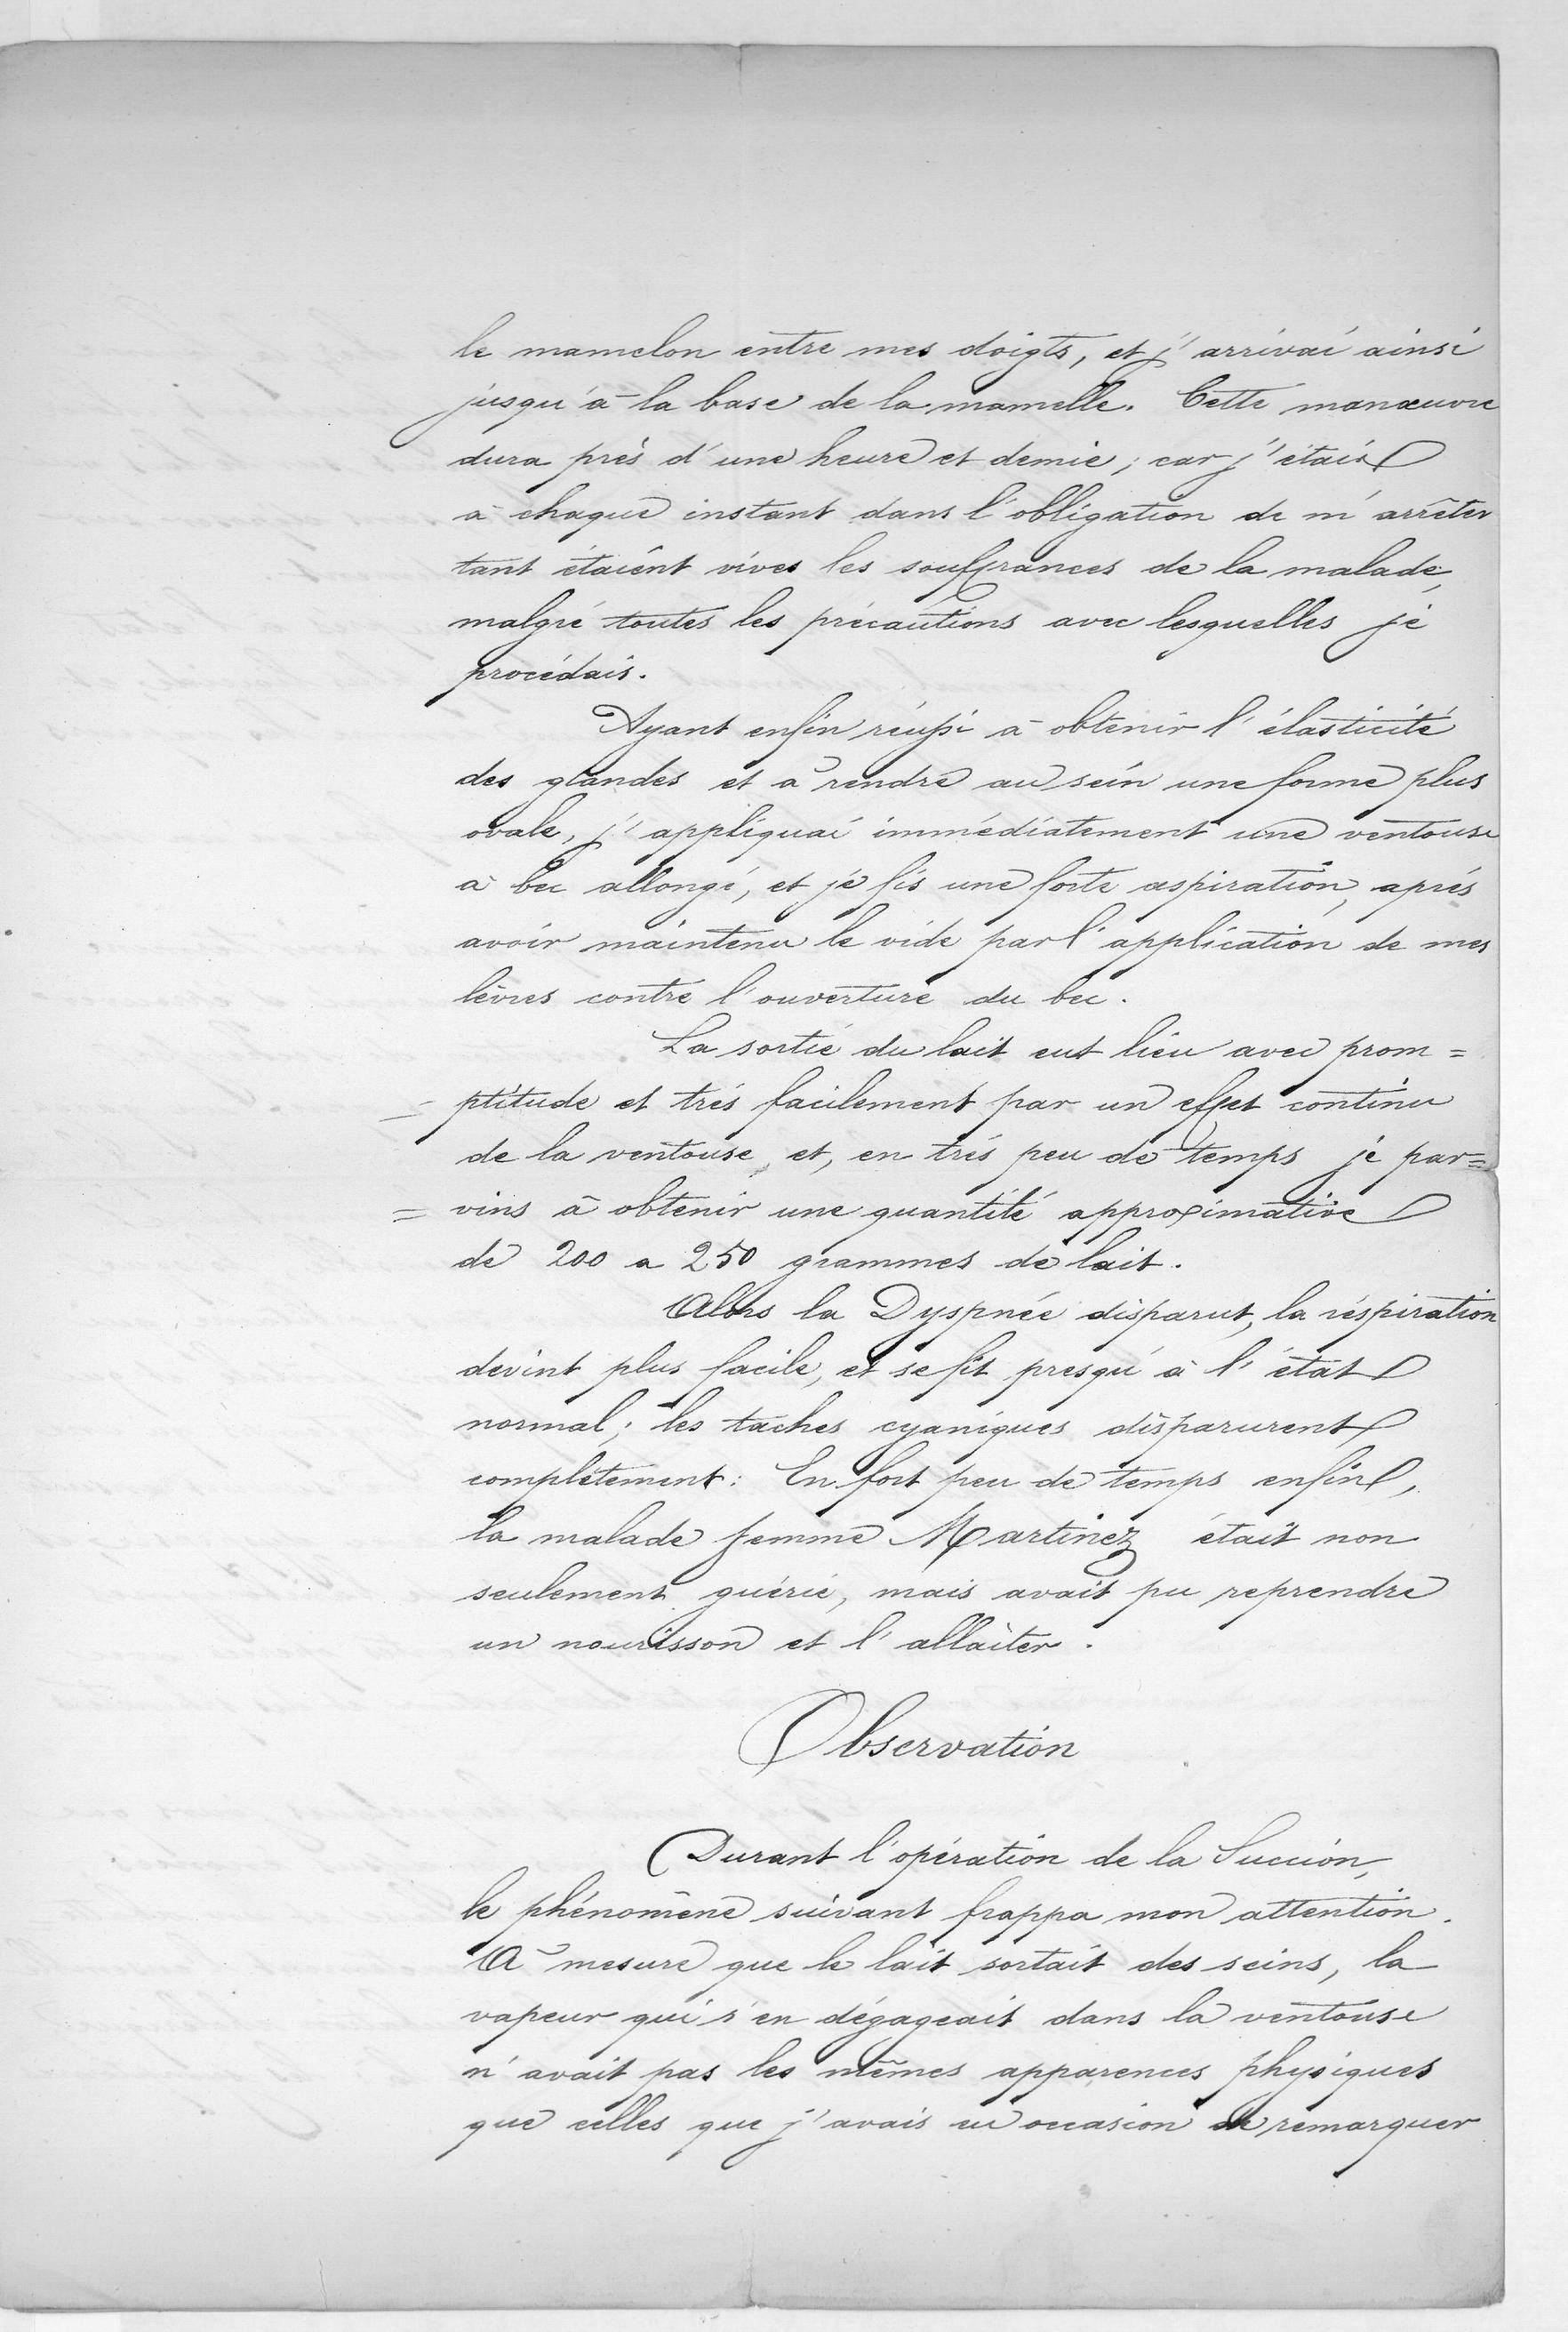 le mamelon entre mes doigts, et j'arrivai ainsi
jusqu'à la base de la mamelle. Cette manœuvre
dura près d'une heure et demie; car j'étais
à chaque instant dans l'obligation de m'arrêter
tant étaient vives les souffrances de la malade,
malgré toutes les précautions avec lesquelles je
procédais.
Ayant enfin réussi à obtenir l'élasticité
des glandes et à rendre au sein une forme plus
ovale, j'appliquai immédiatement une ventouse
à bec allongé, et je fis une forte aspiration, après
avoir maintenu le vide par l'application de mes
lèvres contre l'ouverture du bec.
La sortie du lait eut lieu avec prom=
=ptitude et très facilement par un effet continu
de la ventouse, et, en très peu de temps je par=
=vins à obtenir une quantité approximative
de 200 a 250 grammes de lait.
Alors la Dyspnée disparut, la réspiration
devint plus facile, et se fit presqu'à l'état
normal; les taches cyaniques disparurent
complètement: En fort peu de temps enfin,
la malade femme Martinez était non
seulement guérie, mais avait pu reprendre
un nourisson et l'allaiter.
Observation
Durant l'opération de la Succion,
le phénomène suivant frappa mon attention.
A mesure que le lait sortait des seins, la
vapeur qui s'en dégageait dans la ventouse
n'avait pas les mêmes apparences physiques
que celles que j'avais eu occasion de remarquer